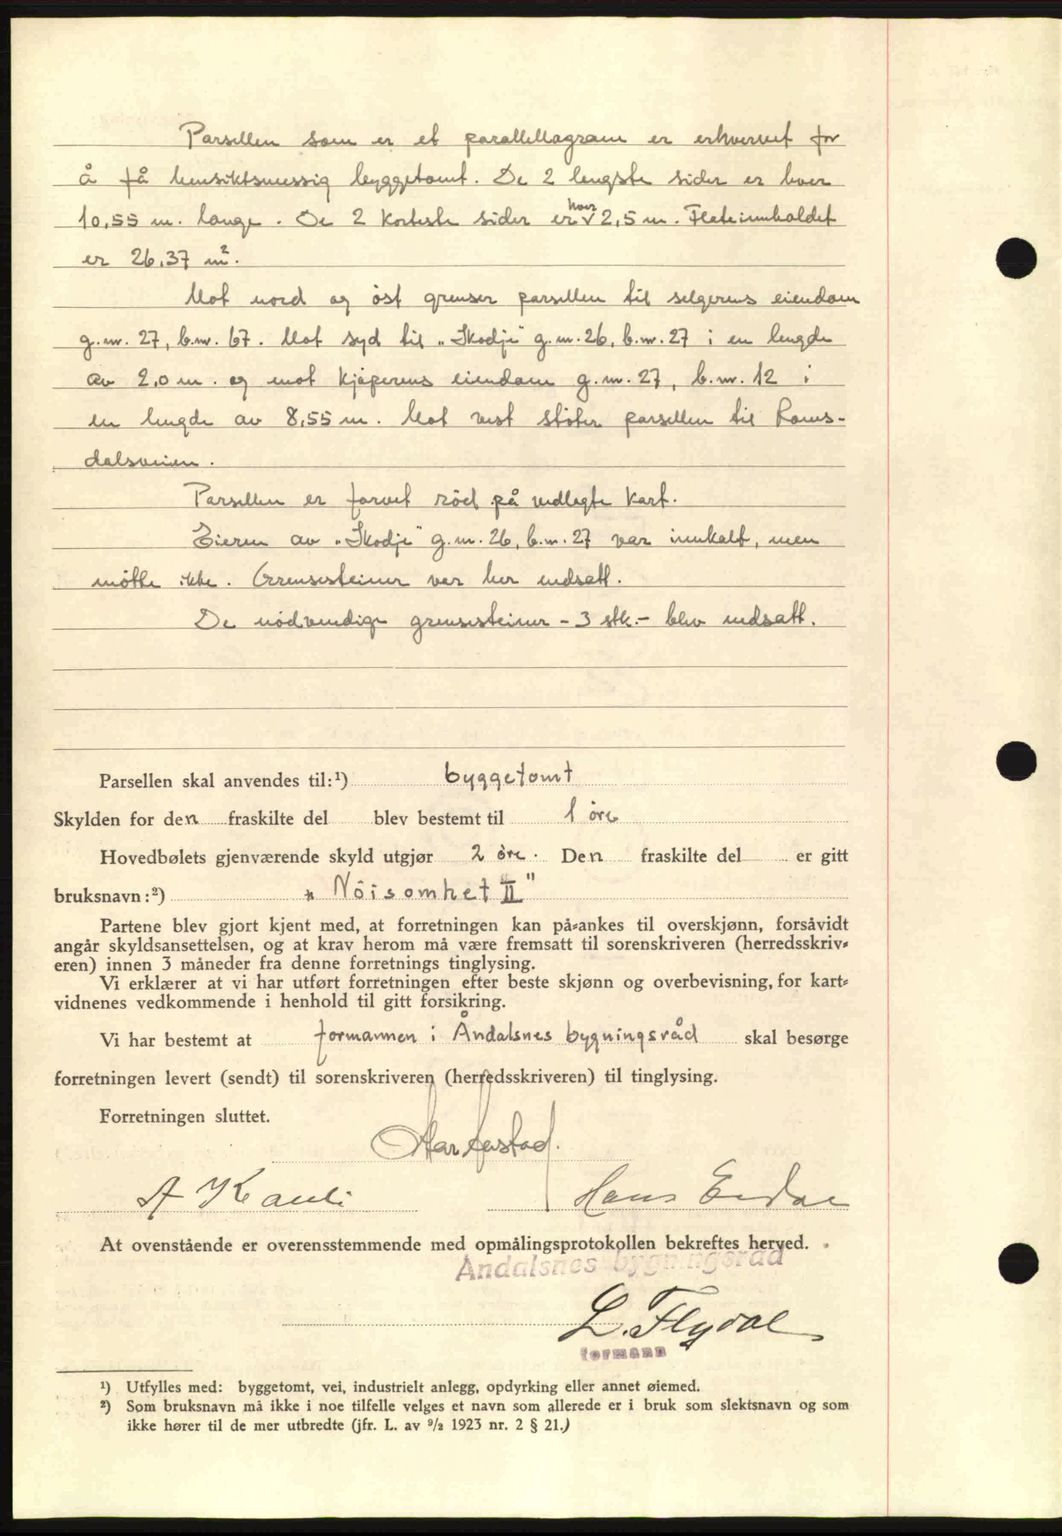 Parsellen som er et parallellogram er erhvervet for
å få hensiktsmessig byggetomt. De 2 lengste sider er hver
10,55 m. lange. De 2 korteste sider er hver 2,5 m. Flateinnholdet
er 26,37 m².
Mot nord og öst grenser parsellen til selgerens eiendom
g.nr. 27, b.nr. 67. Mot syd til „Skodje" g.nr. 26, b.nr. 27 i en lengde
av 2,0 m. og mot kjöperens eiendom g.nr. 27, b.nr. 12 i
en lengde av 8,55 m. Mot vest stöter parsellen til Roms-
dalsveien.
Parsellen er farvet röd på vedlagte kart.
Eieren av „Skodje" g.nr. 26, b.nr. 27 var innkalt, men
mötte ikke. Grensesteiner var her nedsatt.
De nödvendige grensesteiner - 3 stk. - blev nedsatt.
Parsellen skal anvendes til:¹) byggetomt
Skylden for den fraskilte del blev bestemt til 1 öre
Hovedbølets gjenværende skyld utgjør 2 öre. Den fraskilte del er gitt
bruksnavn:²) „Nöisomhet II"
Partene blev gjort kjent med, at forretningen kan på-ankes til overskjønn, forsåvidt
angår skyldsansettelsen, og at krav herom må være fremsatt til sorenskriveren (herredsskriv-
eren) innen 3 måneder fra denne forretnings tinglysing.
Vi erklærer at vi har utført forretningen efter beste skjønn og overbevisning, for kart-
vidnenes vedkommende i henhold til gitt forsikring.
Vi har bestemt at formannen i Åndalsnes bygningsråd skal besørge
forretningen levert (sendt) til sorenskriveren (herredsskriveren) til tinglysing.
Forretningen sluttet.
A Kavli Hans
At ovenstående er overensstemmende med opmålingsprotokollen bekreftes herved.
Åndalsnes bygningsråd
L. Flydal
formann
¹) Utfylles med: byggetomt, vei, industrielt anlegg, opdyrking eller annet øiemed.
²) Som bruksnavn må ikke i noe tilfelle velges et navn som allerede er i bruk som slektsnavn og som
ikke hører til de mer utbredte (jfr. L. av ⁹/₂ 1923 nr. 2 § 21.)